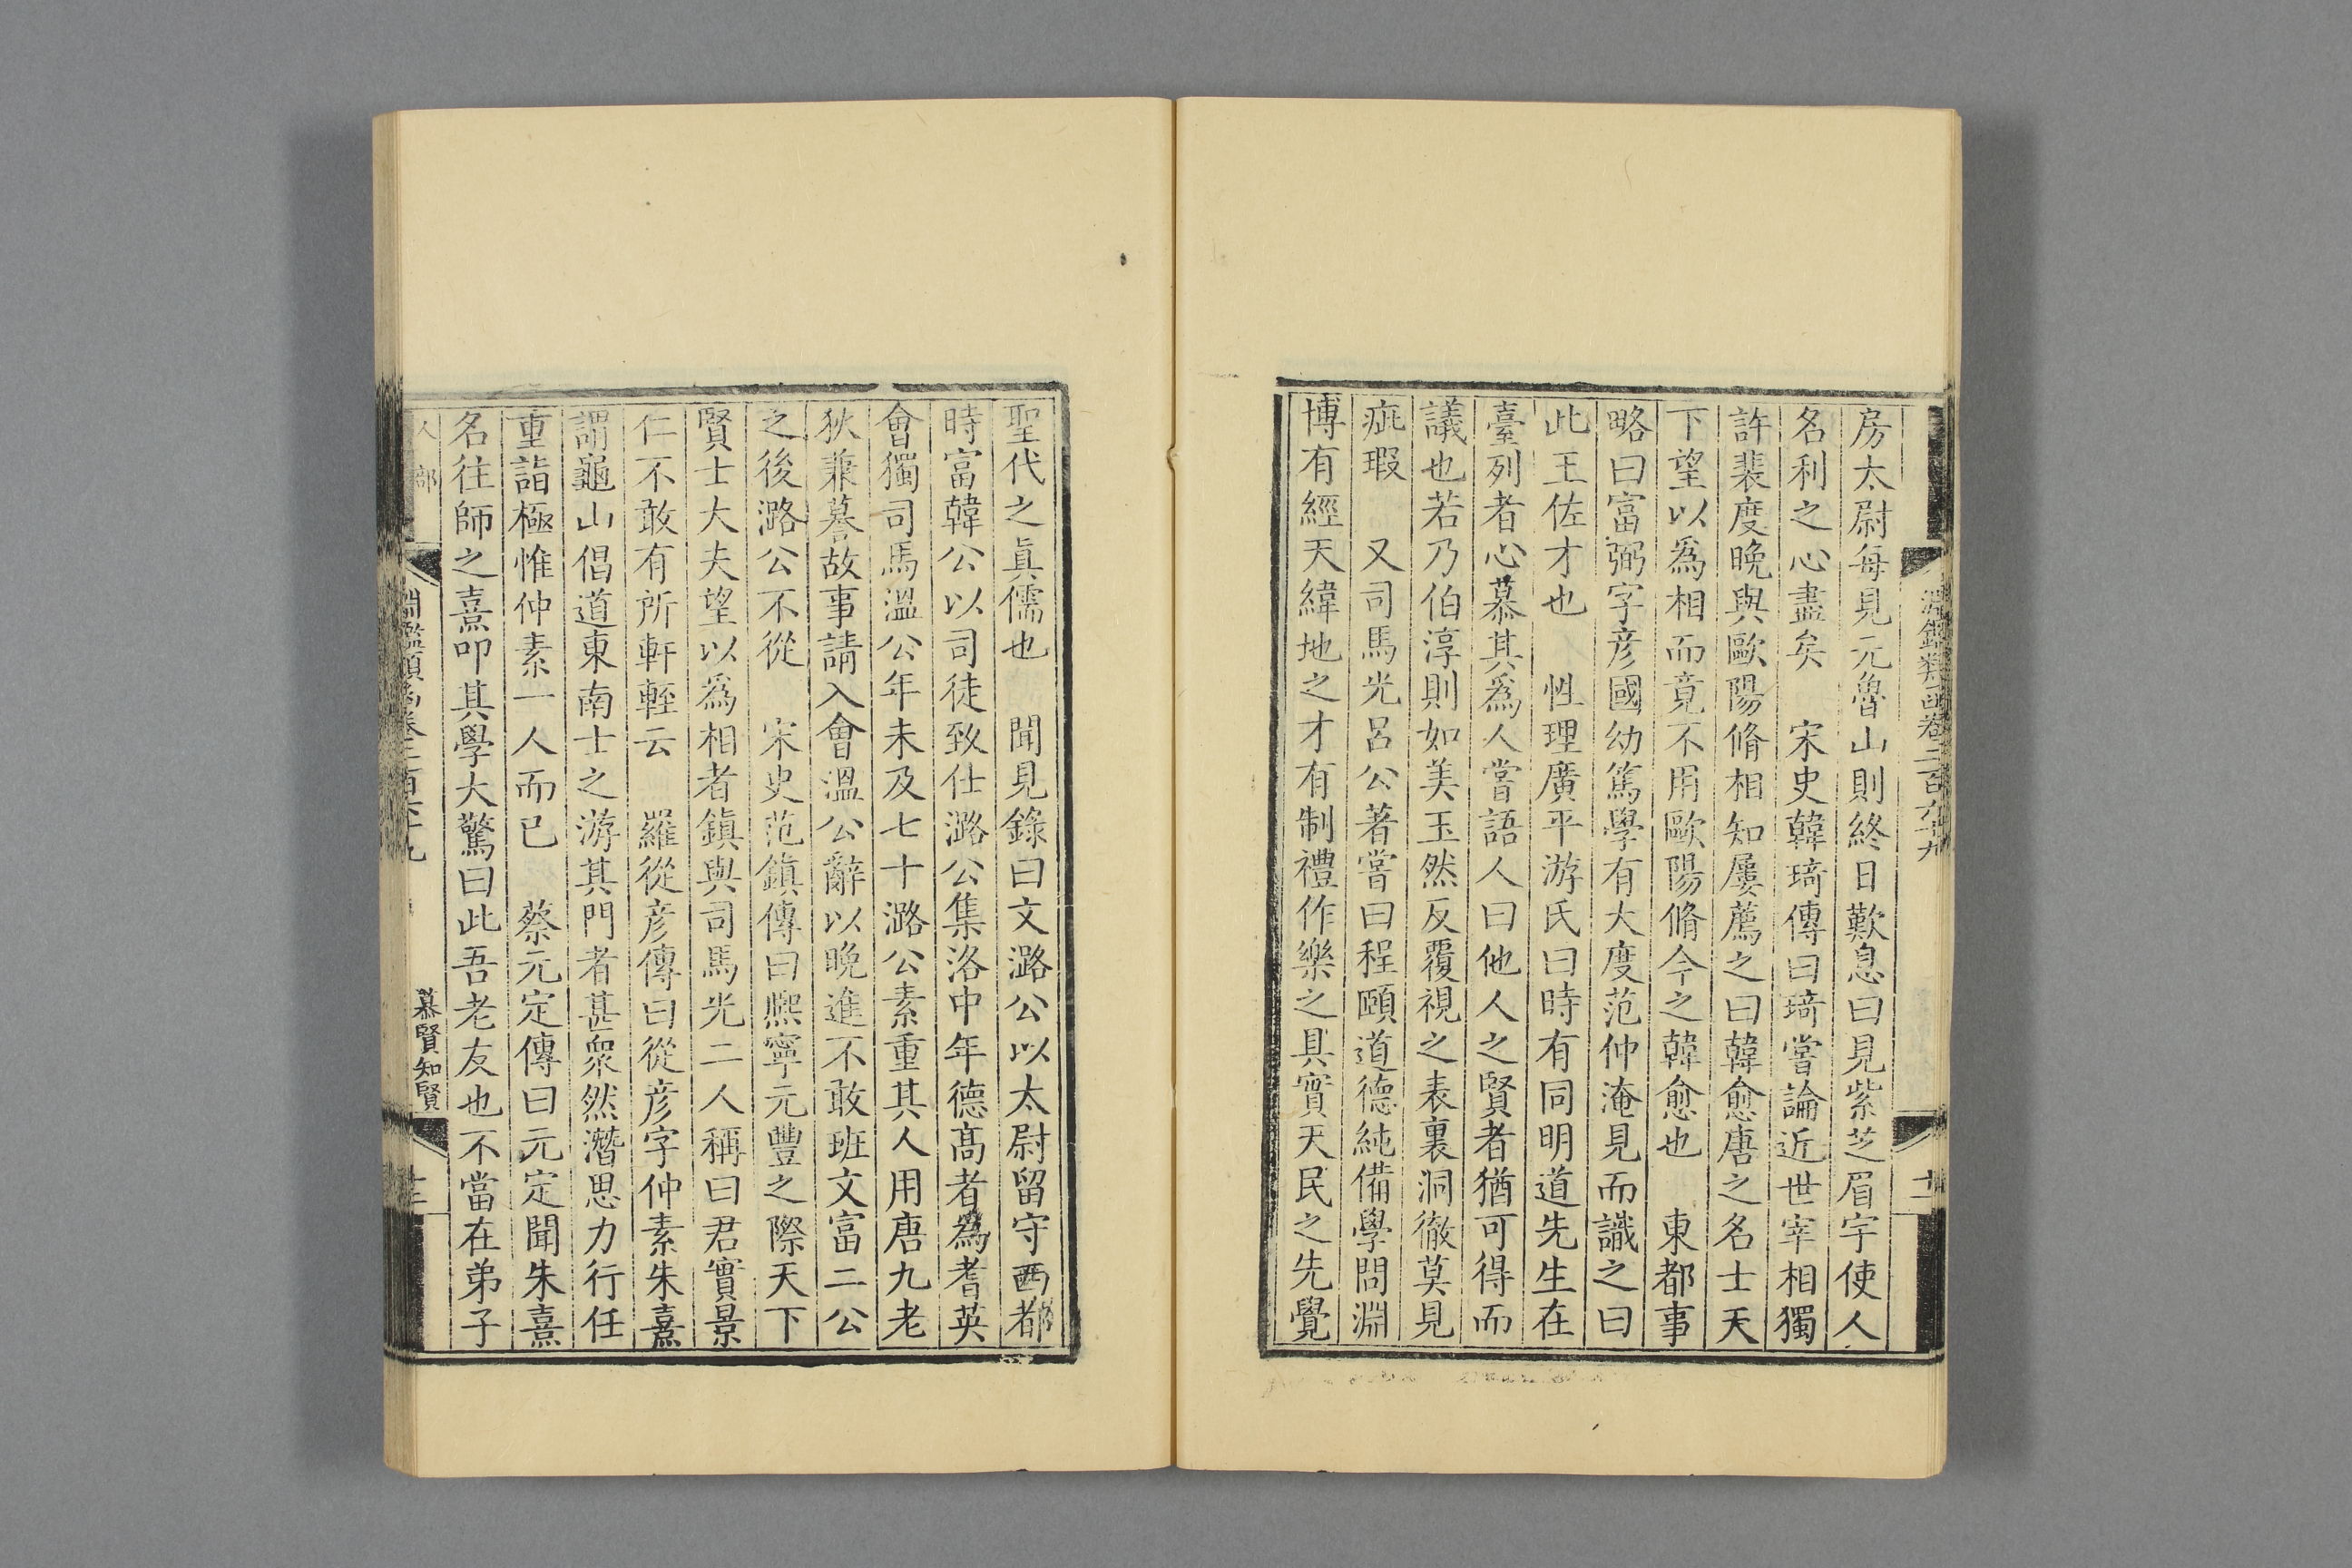 淵鑑類函卷二百六十九
十二
房太尉每見元魯山則終日歎息曰見紫芝眉宇使人
名利之心盡矣　宋史韓琦傳曰琦嘗論近世宰相獨
許裴度晚與歐陽脩相知屢薦之曰韓愈唐之名士天
下望以爲相而竟不用歐陽脩今之韓愈也　東都事
略曰富弼字彥國幼篤學有大度范仲淹見而識之曰
此王佐才也　性理廣平游氏曰時有同明道先生在
臺列者心慕其爲人嘗語人曰他人之賢者猶可得而
議也若乃伯淳則如美玉然反覆視之表裏洞徹莫見
疵瑕　又司馬光呂公著嘗曰程頤道德純備學問淵
博有經天緯地之才有制禮作樂之具實天民之先覺
聖代之眞儒也　聞見錄曰文潞公以太尉留守西都
時富韓公以司徒致仕潞公集洛中年德高者爲耆英
會獨司馬溫公年未及七十潞公素重其人用唐九老
狄兼謩故事請入會溫公辭以晚進不敢班文富二公
之後潞公不從　宋史范鎮傳曰熙寧元豐之際天下
賢士大夫望以爲相者鎮與司馬光二人稱曰君實景
仁不敢有所軒輊云　羅從彥傳曰從彥字仲素朱熹
謂龜山倡道東南士之游其門者甚衆然潛思力行任
重詣極惟仲素一人而已　蔡元定傳曰元定聞朱熹
名往師之熹叩其學大驚曰此吾老友也不當在弟子
人部
淵鑑類函卷二百六十九
慕賢知賢
十三